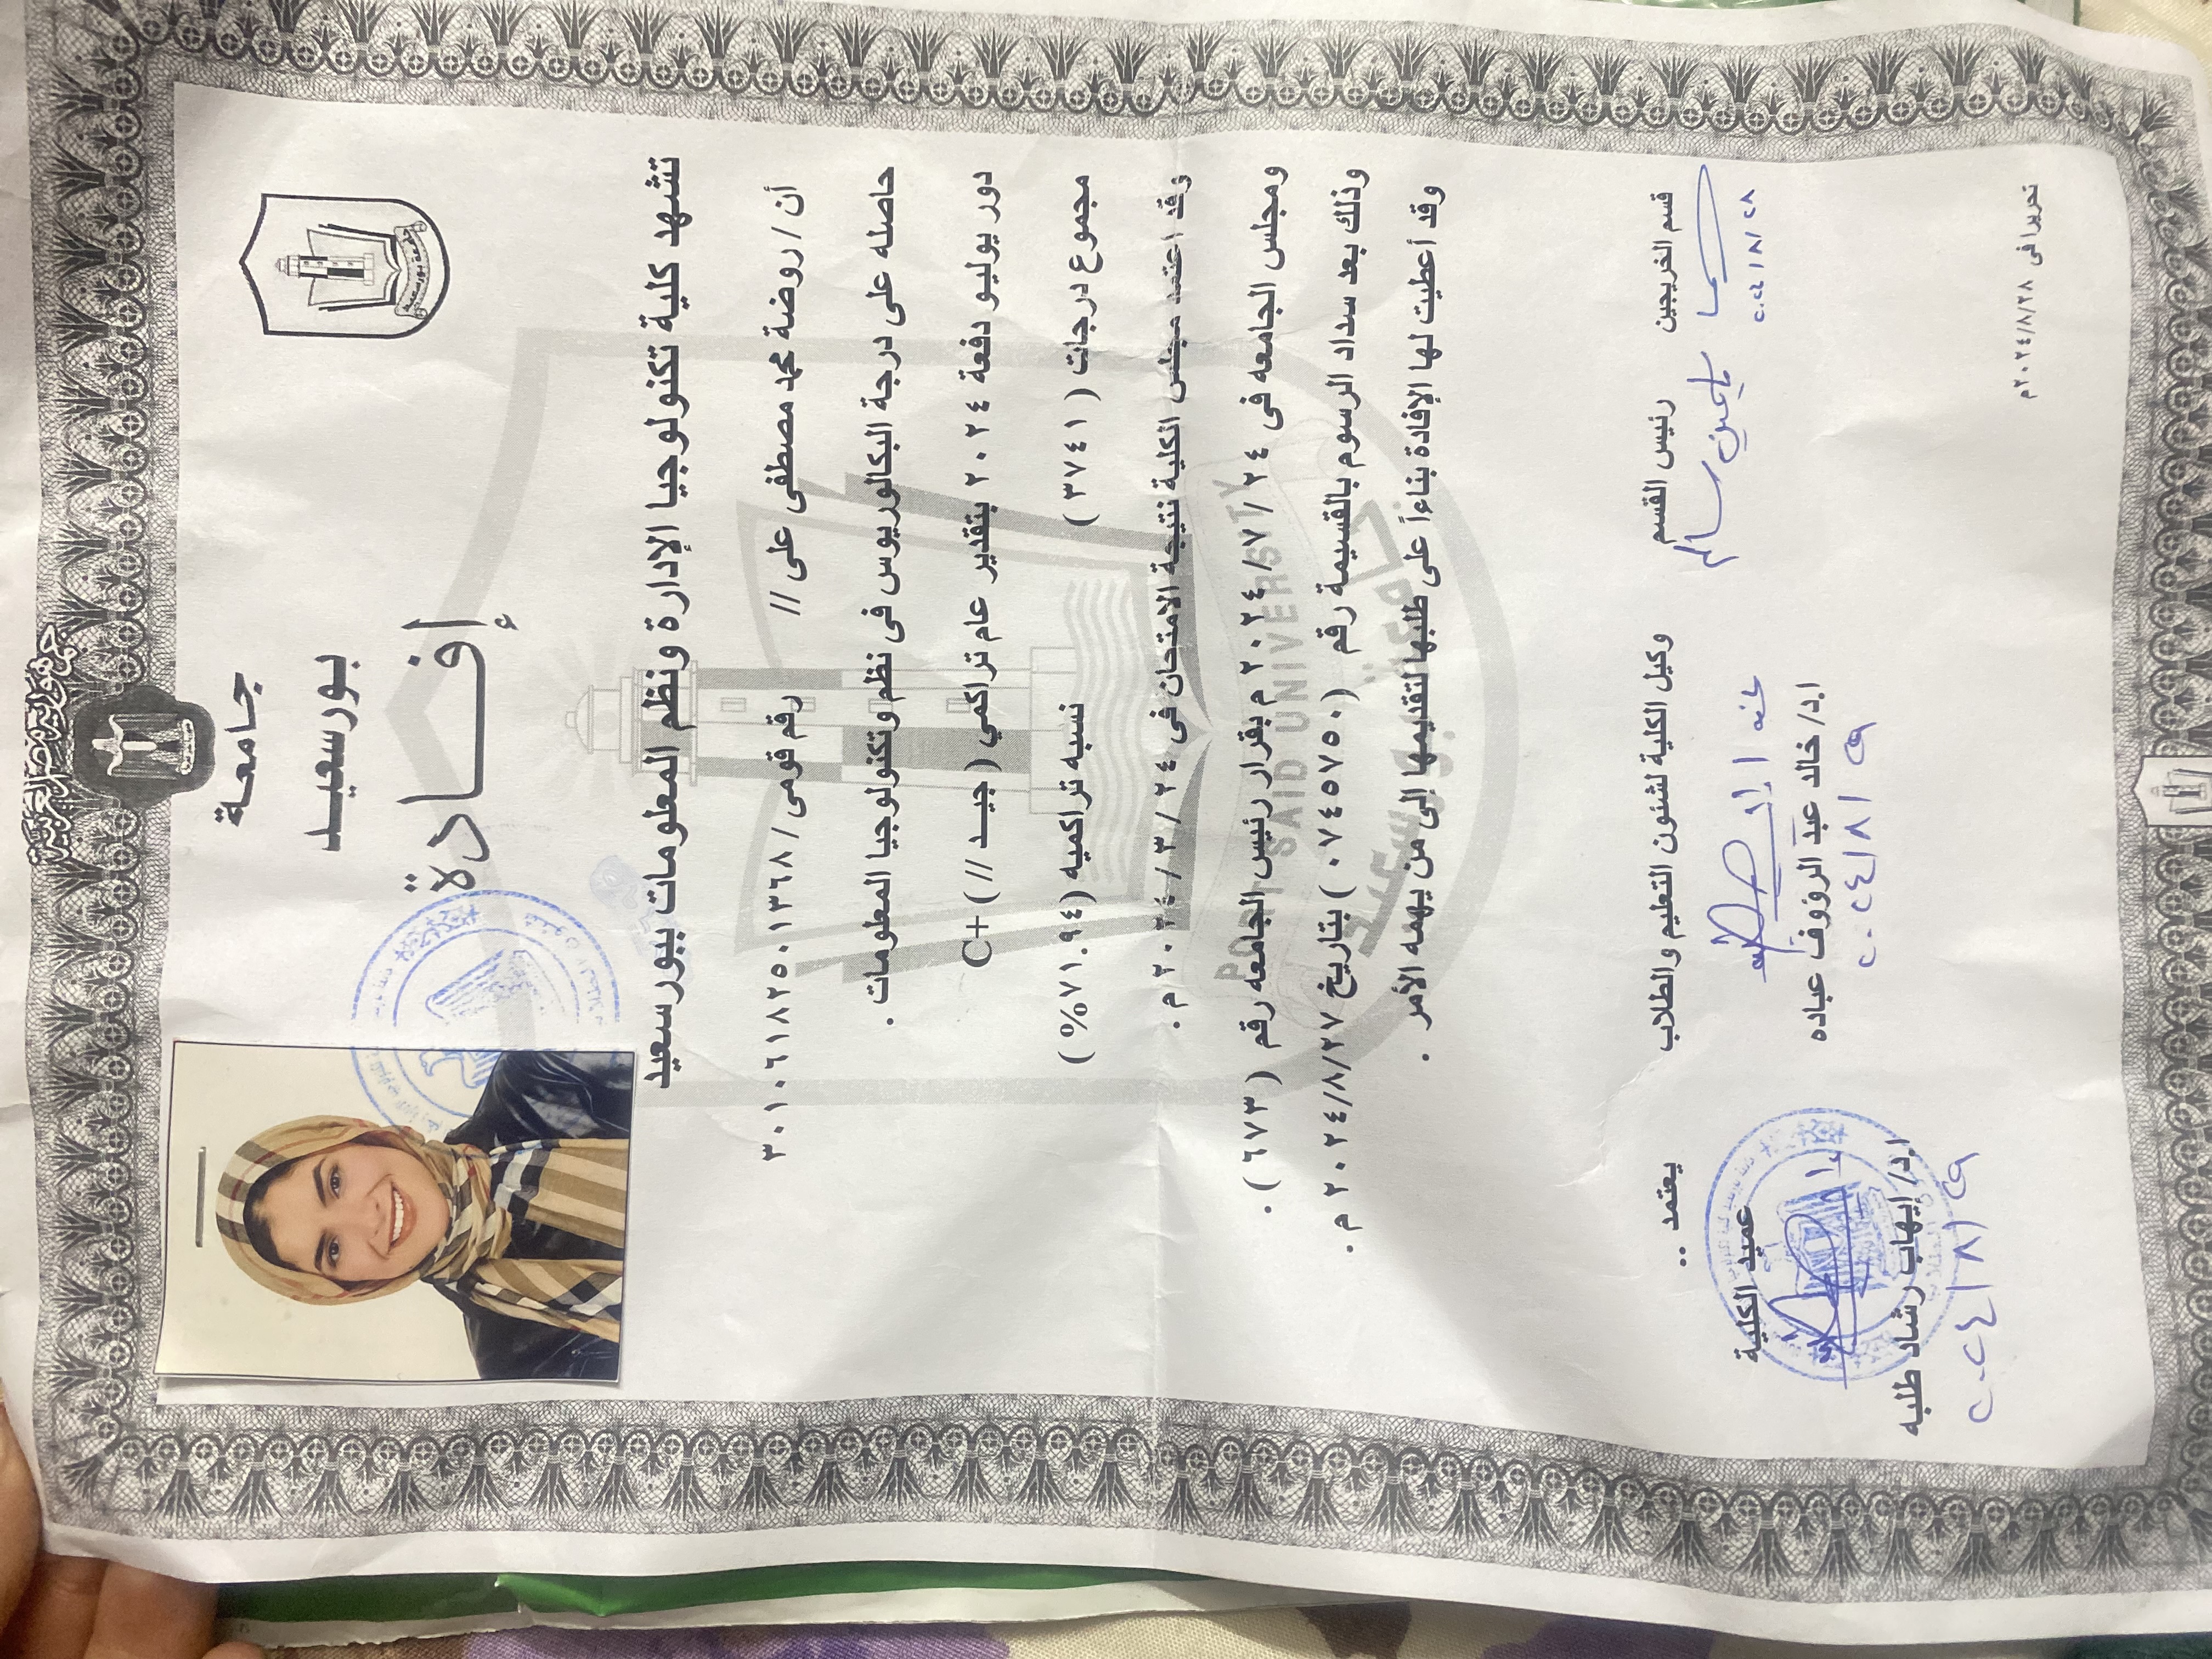 جمهورية مصر العربية
جامعة
بورسعيد
إفادة
تشهد كلية تكنولوجيا الإدارة ونظم المعلومات ببورسعيد
أن / روضة محمد مصطفى على // رقم قومى / ٣٠١٠٦١٨٢٥٠١٣٦٨
حاصله على درجة البكالوريوس فى نظم وتكنولوجيا المعلومات .
دور يوليو دفعة ٢٠٢٤ بتقدير عام تراكمي ( جيد // ) C+
مجموع درجات ( ٣٧٤١ ) نسبه تراكميه ( ٧١.٩٤% )
وقد اعتمد مجلس الكلية نتيجة الامتحان فى ٢٤ / ٣ / ٢٠٢٤م .
ومجلس الجامعه فى ٢٤ / ٧ / ٢٠٢٤ م بقرار رئيس الجامعه رقم ( ٦٧٣ ) .
وذلك بعد سداد الرسوم بالقسيمة رقم ( ٠٧٤٥٥٧٥٠ ) بتاريخ ٢٠٢٤/٨/٢٧ م .
وقد أعطيت لها الإفادة بناءاً على طلبها لتقديمها إلى من يهمه الأمر .
PORT SAID UNIVERSITY
جامعة بورسعيد
قسم الخريجين رئيس القسم وكيل الكلية لشئون التعليم والطلاب يعتمد ..
عميد الكلية
ياسمين سالم
٢٠٢٤/٨/٢٨
أ.د/ خالد عبد الرؤوف عباده
أ.د/ إيهاب رشاد طلبه
تحريرا فى ٢٠٢٤/٨/٢٨م